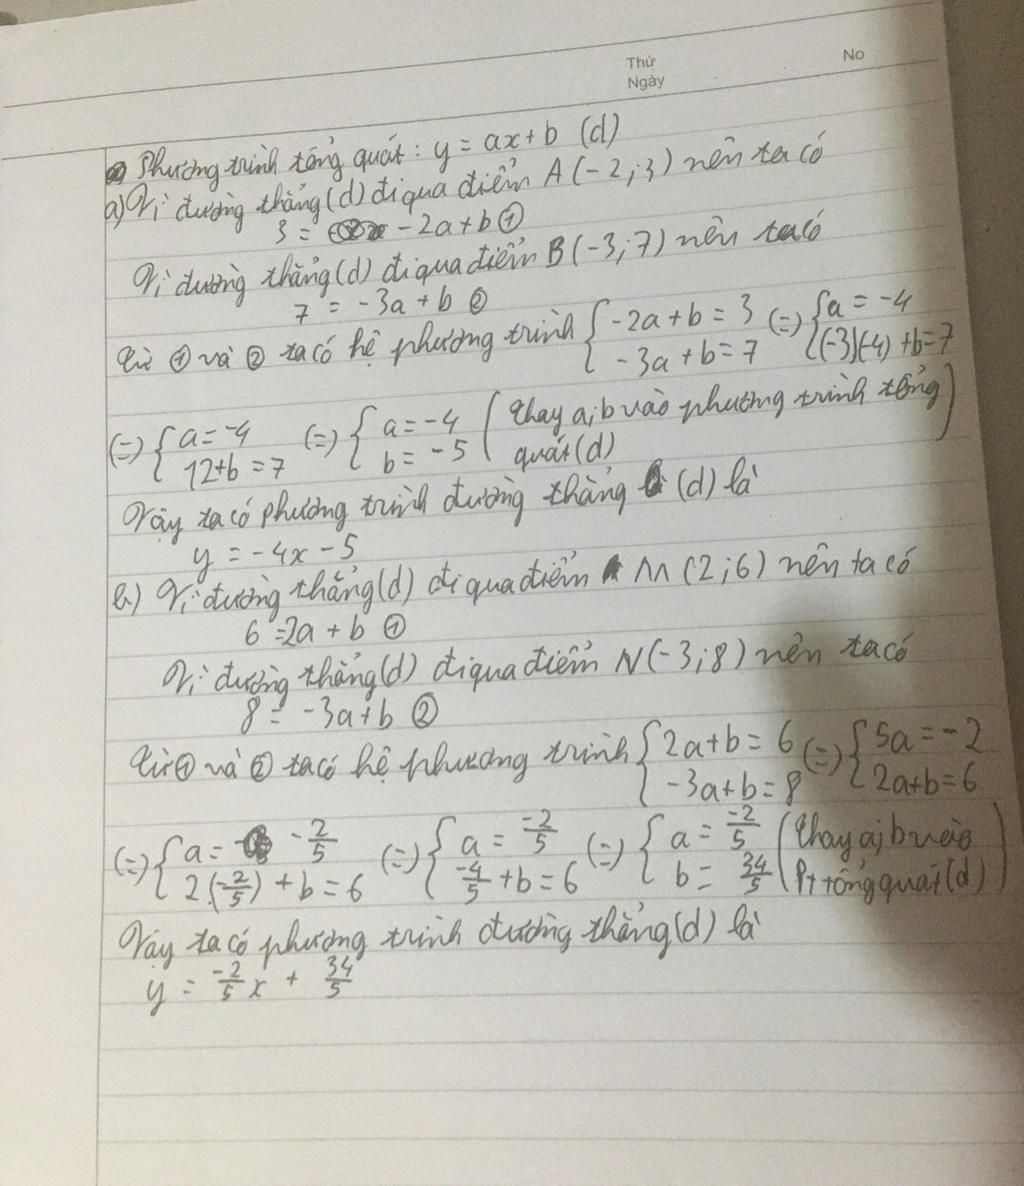 Thứ
Ngày
No
Phương trình tổng quát: y = ax + b (d)
a) Vì đường thẳng (d) đi qua điểm A (-2;3) nên ta có
3 = -2a + b ①
Vì đường thẳng (d) đi qua điểm B (-3;7) nên ta có
7 = -3a + b ②
Từ ① và ② ta có hệ phương trình { -2a + b = 3 (=) { a = -4
-3a + b = 7 (-3)(-4) + b = 7
(=) { a = -4 (=) { a = -4 ( thay a;b vào phương trình tổng
12 + b = 7 b = -5 quát (d) )
Vậy ta có phương trình đường thẳng (d) là
y = -4x - 5
b) Vì đường thẳng (d) đi qua điểm M (2;6) nên ta có
6 = 2a + b ①
Vì đường thẳng (d) đi qua điểm N (-3;8) nên ta có
8 = -3a + b ②
Từ ① và ② ta có hệ phương trình { 2a + b = 6 (=) { 5a = -2
-3a + b = 8 2a + b = 6
(=) { a = -2/5 (=) { a = -2/5 (=) { a = -2/5 ( thay a;b vào
2.(-2/5) + b = 6 -4/5 + b = 6 b = 34/5 Pt tổng quát (d) )
Vậy ta có phương trình đường thẳng (d) là
y = -2/5 x + 34/5